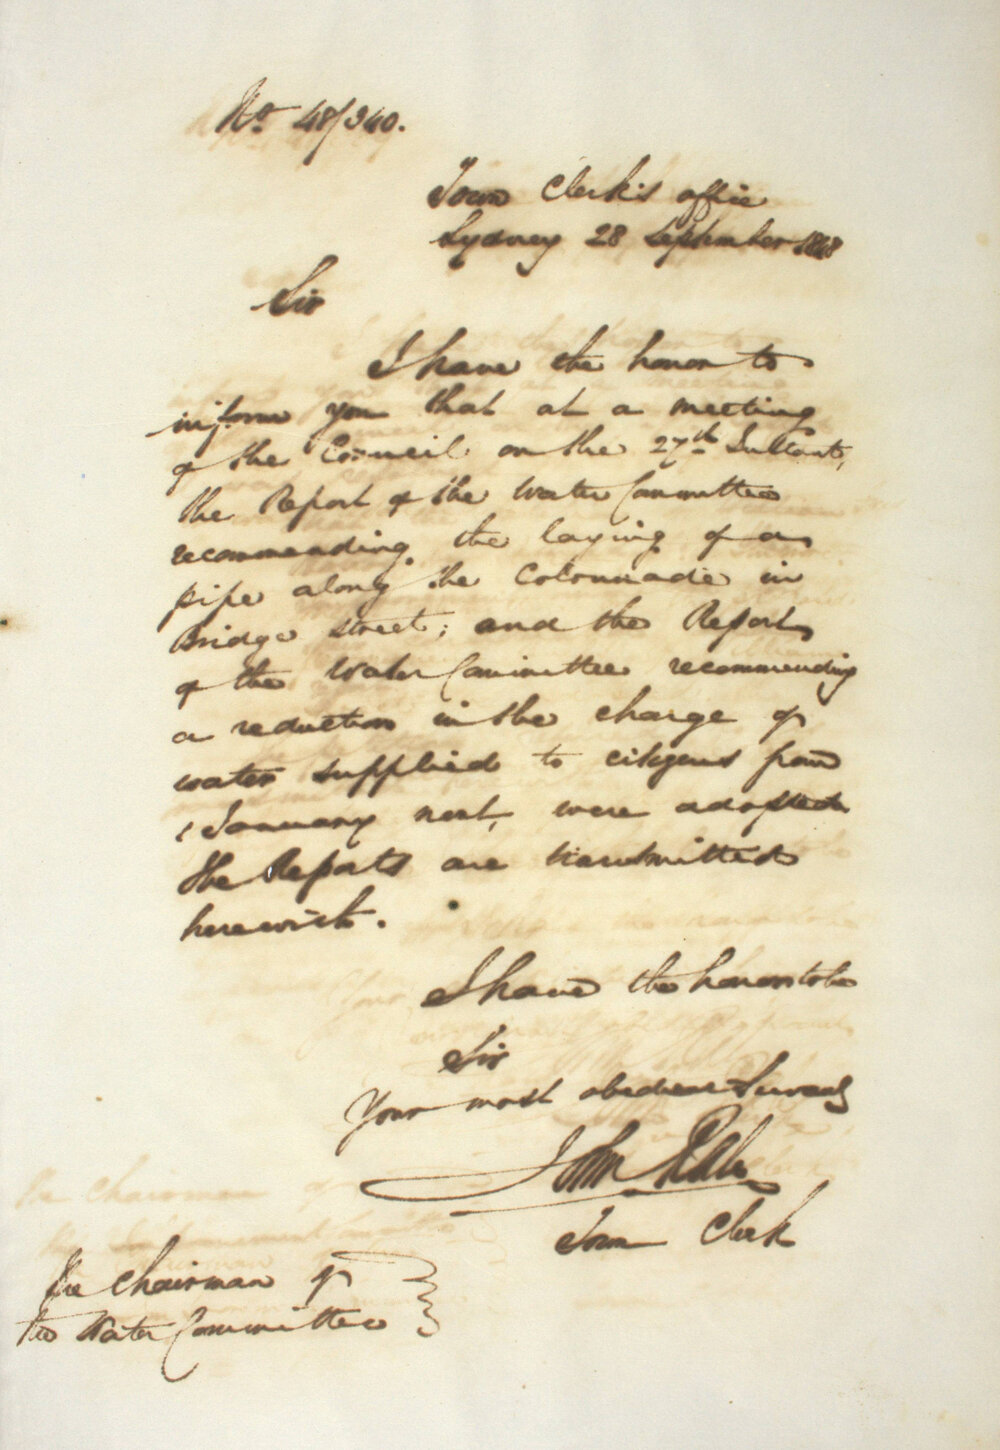 No. 48/340.
Town Clerk's office
Sydney 28 September 1848
Sir
I have the honor to
inform you that at a meeting
of the Council on the 27th Instant,
the Report of the Water Committee
recommending the laying of a
pipe along the Colonnade in
Bridge street; and the Report
of the Water Committee recommending
a reduction in the charge of
water supplied to citizens from
1 January next, were adopted
the Reports are transmitted
herewith.
I have the honor to be
Sir
Your most obedient Servant
John
Town Clerk
The Chairman of
the Water Committee